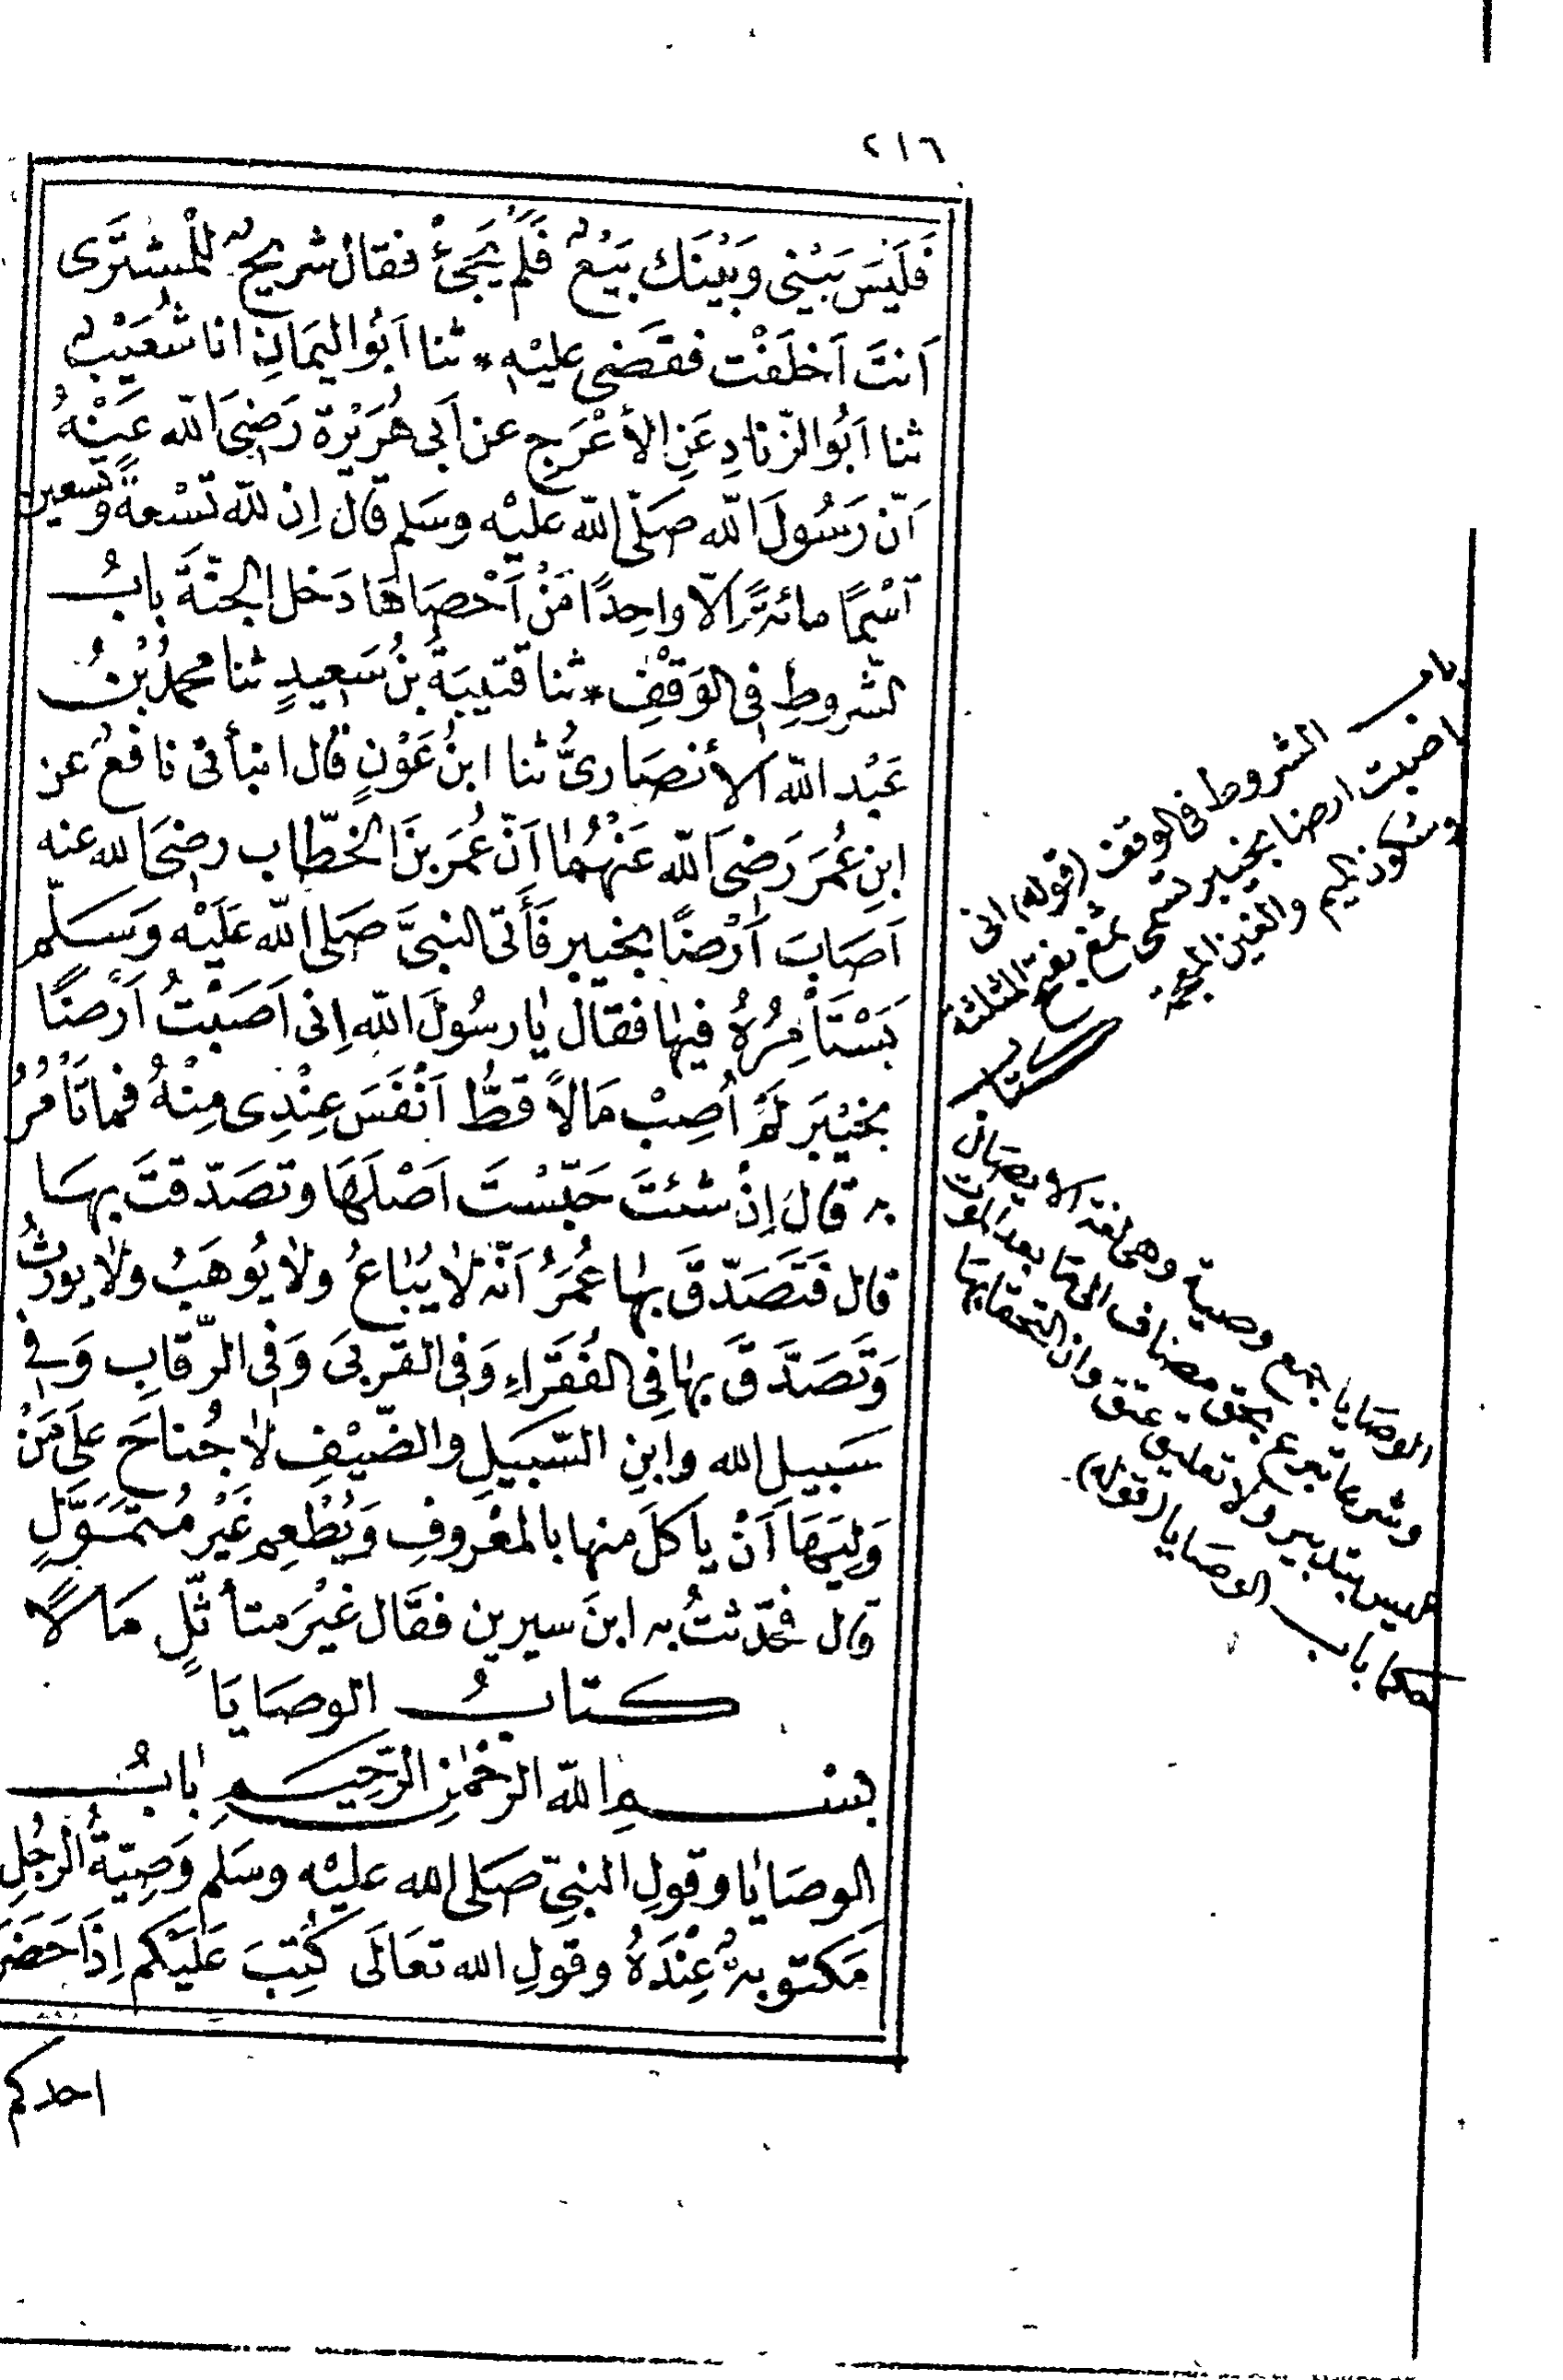 ٢١٦
فَلَيْسَ بَيْنِي وَبَيْنَكَ بَيْعٌ فَلَمْ يَجِئْ فقال شريحٌ لِلْمُشْتَرَى
اَنتَ اَخلَفْتَ فقَضَى عليْهِ * ثنا اَبُو اليَمَانِ انا شُعَيْبٌ
ثنا اَبُو الزّنادِ عَنِ الأَعْرَجِ عن اَبى هُرَيْرَة رَضِىَ الله عَنْهُ
اَنّ رَسُولَ الله صَلّى الله عليْه وسَلم قال اِن لله تسْعةً وتسعين
اسْمًا مائةً اِلاّ واحِدًا مَنْ اَحْصَاهَا دَخل الجنّةَ بابُ
الشّروطِ فِى الوَقْفِ * ثنا قتيبَةُ بنُ سَعِيدٍ ثنا محمدُ بْنُ
عَبْد الله الأَنصَارىُّ ثنا ابنُ عَوْنٍ قال انبأنى نافعٌ عن
ابنِ عُمَرَ رَضىَ الله عَنْهُمَا اَنّ عُمَرَ بنَ الخطّاب رضىَ الله عنه
اَصَابَ اَرْضًا بخيبر فَأَتَى النبىَّ صَلى الله عَلَيْه وَسَلّم
يَسْتَأْمِرُهُ فيها فقال يا رسُولَ الله اِنى اَصَبْتُ اَرْضًا
بخيْبَرَ لَمْ اُصِبْ مَالاً قطُّ اَنْفَسَ عِنْدِى مِنْهُ فما تَأْمُرُ
به قالَ اِنْ شئتَ حَبّسْتَ اَصْلَهَا وتصَدّقتَ بهَا
قال فَتَصَدّقَ بها عُمَرُ اَنّه لا يُبَاعُ ولا يُوهَبُ ولا يورثُ
وَتَصَدَّقَ بها فِى الفُقَرَاءِ وَفِى القربى وَفِى الرّقابِ وَفِى
سَبيلِ الله وابنِ السَّبيلِ والضّيْفِ لا جُناحَ عَلَى مَنْ
وَلِيَهَا اَنْ ياكلَ منها بالمعْروفِ وَيُطْعِم غَيْرَ مُتَمَوّلٍ
قال فحَدّثتُ به ابنَ سيرين فقال غيْرَ متأثّلٍ مَالاً
كتابُ الوصَايَا
بسم الله الرّحْمنِ الرّحِيمِ بابُ
الوصَايا وقولِ النبىِّ صَلى الله عليْه وسَلم وَصِيّةُ الرجُلِ
مَكتوبةٌ عِنْدَهُ وقولِ الله تعَالَى كُتِبَ عَلَيْكم اِذَا حَضَرَ
احدكم
باب الشروط فى الوقف (قوله) انى
اصبت ارضا بخيبر تسمى ثمغ بفتح المثلثة
وسكون الميم والغين المعجمة
كتاب
الوصَايا جمع وصية وهى لغة الايصال
وشرعا تبرع بحق مضاف الى ما بعد الموت
ليس بتدبير ولا تعليق عتق وان التحقا بها
حكما باب الوصَايا (قوله)